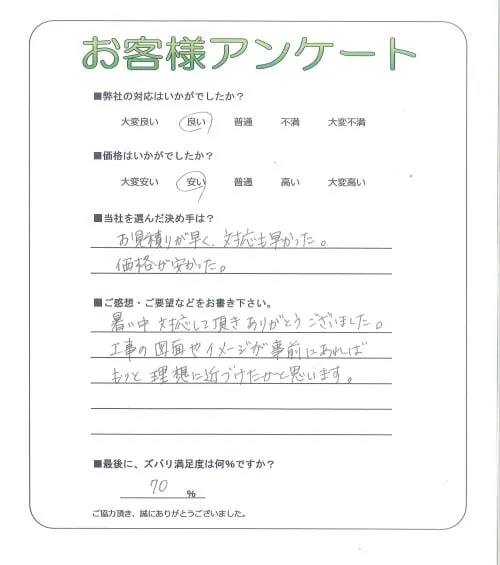 お客様アンケート
■弊社の対応はいかがでしたか?
大変良い 良い 普通 不満 大変不満
■価格はいかがでしたか?
大変安い 安い 普通 高い 大変高い
■当社を選んだ決め手は?
お見積りが早く、対応も早かった。
価格が安かった。
■ご感想・ご要望などをお書き下さい。
暑い中 対応して頂きありがとうございました。
工事の図面やイメージが事前にあれば
もっと理想に近づけたかと思います。
■最後に、ズバリ満足度は何%ですか?
70 %
ご協力頂き、誠にありがとうございました。